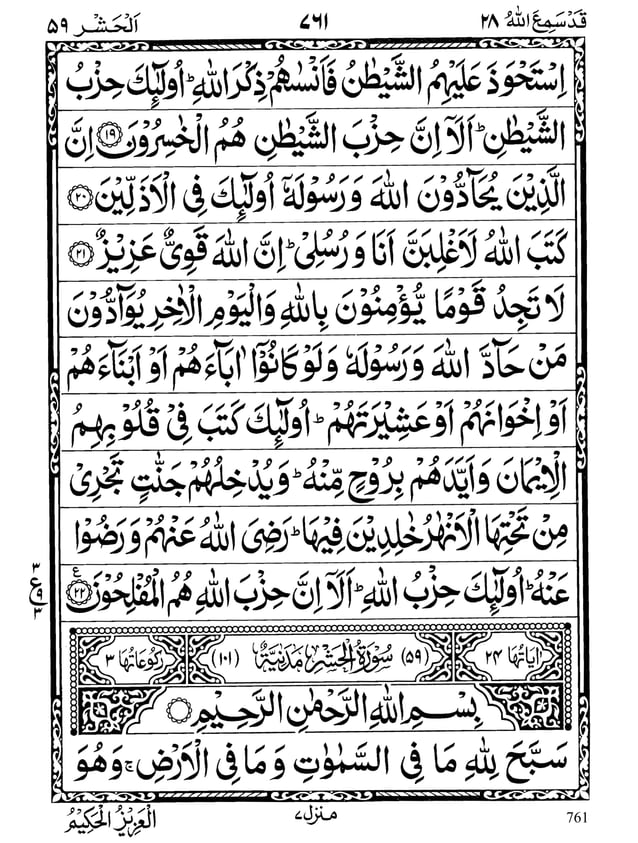 قَدۡسَمِعَ اللهُ ٢٨ ٧٦١ اَلۡحَشۡر ٥٩
اِسۡتَحۡوَذَ عَلَيۡهِمُ الشَّيۡطٰنُ فَاَنۡسٰىهُمۡ ذِكۡرَ اللّٰهِ ؕ اُولٰٓئِكَ حِزۡبُ
الشَّيۡطٰنِ ؕ اَلَاۤ اِنَّ حِزۡبَ الشَّيۡطٰنِ هُمُ الۡخٰسِرُوۡنَ ۝١٩ اِنَّ
الَّذِيۡنَ يُحَآدُّوۡنَ اللّٰهَ وَرَسُوۡلَهٗۤ اُولٰٓئِكَ فِى الۡاَذَلِّيۡنَ ۝٢٠
كَتَبَ اللّٰهُ لَاَغۡلِبَنَّ اَنَا وَرُسُلِىۡ ؕ اِنَّ اللّٰهَ قَوِىٌّ عَزِيۡزٌ ۝٢١
لَا تَجِدُ قَوۡمًا يُّؤۡمِنُوۡنَ بِاللّٰهِ وَالۡيَوۡمِ الۡاٰخِرِ يُوَآدُّوۡنَ
مَنۡ حَآدَّ اللّٰهَ وَرَسُوۡلَهٗ وَلَوۡ كَانُوۡۤا اٰبَآءَهُمۡ اَوۡ اَبۡنَآءَهُمۡ
اَوۡ اِخۡوَانَهُمۡ اَوۡ عَشِيۡرَتَهُمۡ ؕ اُولٰٓئِكَ كَتَبَ فِىۡ قُلُوۡبِهِمُ
الۡاِيۡمَانَ وَاَيَّدَهُمۡ بِرُوۡحٍ مِّنۡهُ ؕ وَيُدۡخِلُهُمۡ جَنّٰتٍ تَجۡرِىۡ
مِنۡ تَحۡتِهَا الۡاَنۡهٰرُ خٰلِدِيۡنَ فِيۡهَا ؕ رَضِىَ اللّٰهُ عَنۡهُمۡ وَرَضُوۡا
عَنۡهُ ؕ اُولٰٓئِكَ حِزۡبُ اللّٰهِ ؕ اَلَاۤ اِنَّ حِزۡبَ اللّٰهِ هُمُ الۡمُفۡلِحُوۡنَ ۝٢٢ ع
٣ ع ٩ ٣
اٰيَاتُهَا ٢٤ (٥٩) سُوۡرَةُ الۡحَشۡرِ مَدَنِيَّةٌ (١٠١) رُكُوۡعَاتُهَا ٣
بِسۡمِ اللّٰهِ الرَّحۡمٰنِ الرَّحِيۡمِ
سَبَّحَ لِلّٰهِ مَا فِى السَّمٰوٰتِ وَمَا فِى الۡاَرۡضِ ۚ وَهُوَ
الۡعَزِيۡزُ الۡحَكِيۡمُ
منزل ٧
761